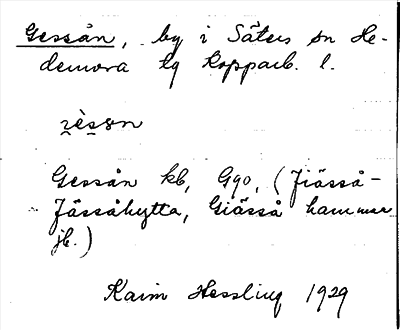 Gessån, by i Säters sn He-
demora tg Kopparb. l.
Gessån kb, GGo, (Jiässå-
Jässåhytta, Giässå hammar
jb.)
Karin Hessling 1929